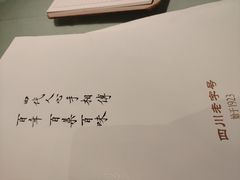 四代人心手相傳
百年 百菜百味
四川老字号
始于1923